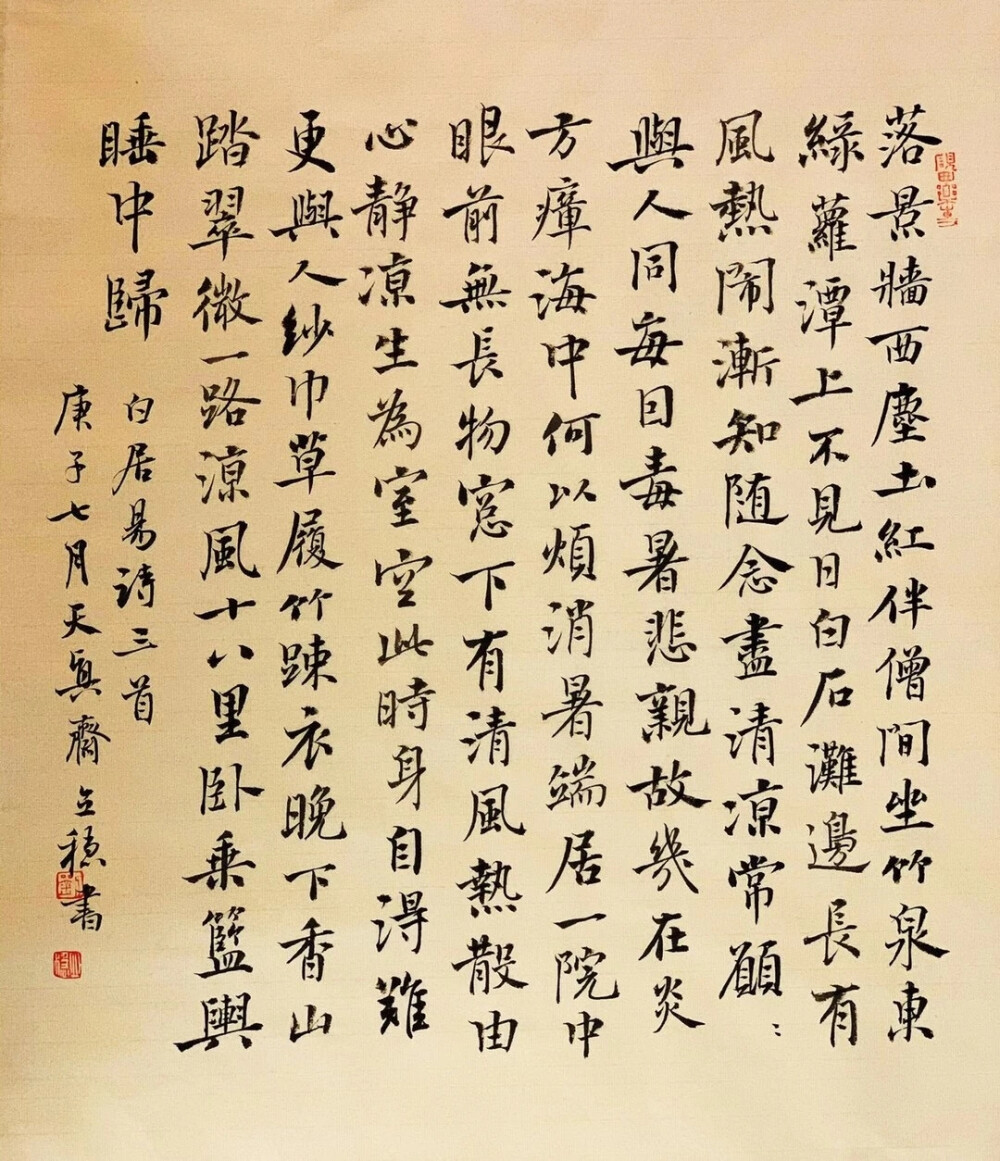 落景牆西塵土紅伴僧閒坐竹泉東
綠蘿潭上不見日白石灘邊長有
風熱鬧漸知随念盡清凉常願〻
與人同每日毒暑悲親故幾在炎
方瘴海中何以煩消暑端居一院中
眼前無長物窓下有清風熱散由
心静凉生為室空此時身自得難
更與人紗巾草履竹踈衣晚下香山
踏翠微一路凉風十八里卧乗籃輿
睡中歸
白居易詩三首
庚子七月天真齋立穏書